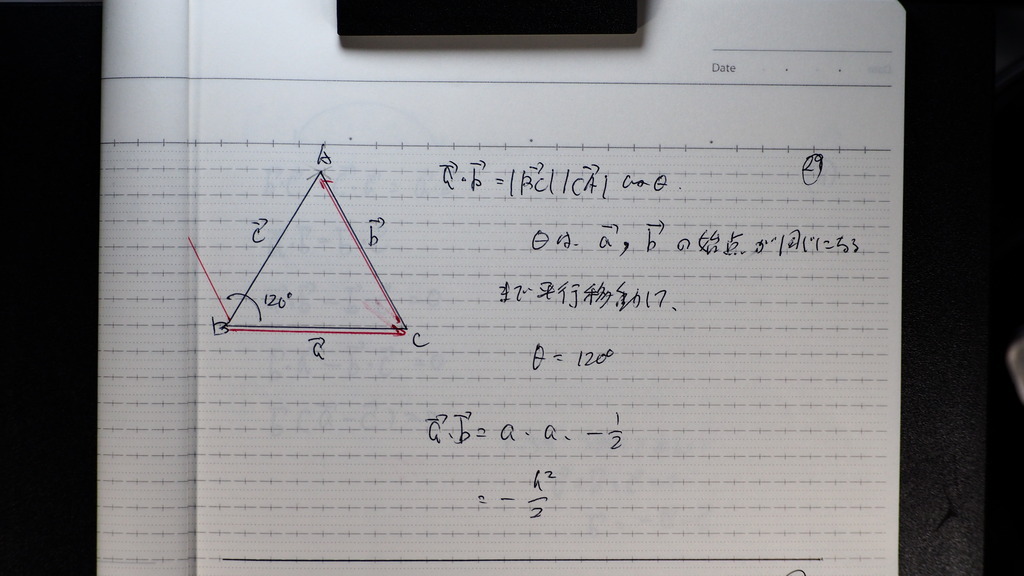 Date
29
A
c⃗
b⃗
120°
B
a⃗
C
a⃗・b⃗ = |BC⃗||CA⃗| cos θ.
θは、a⃗, b⃗ の始点が同じになる
まで平行移動して、
θ = 120°
a⃗・b⃗ = a・a・-1/2
= - a²/2